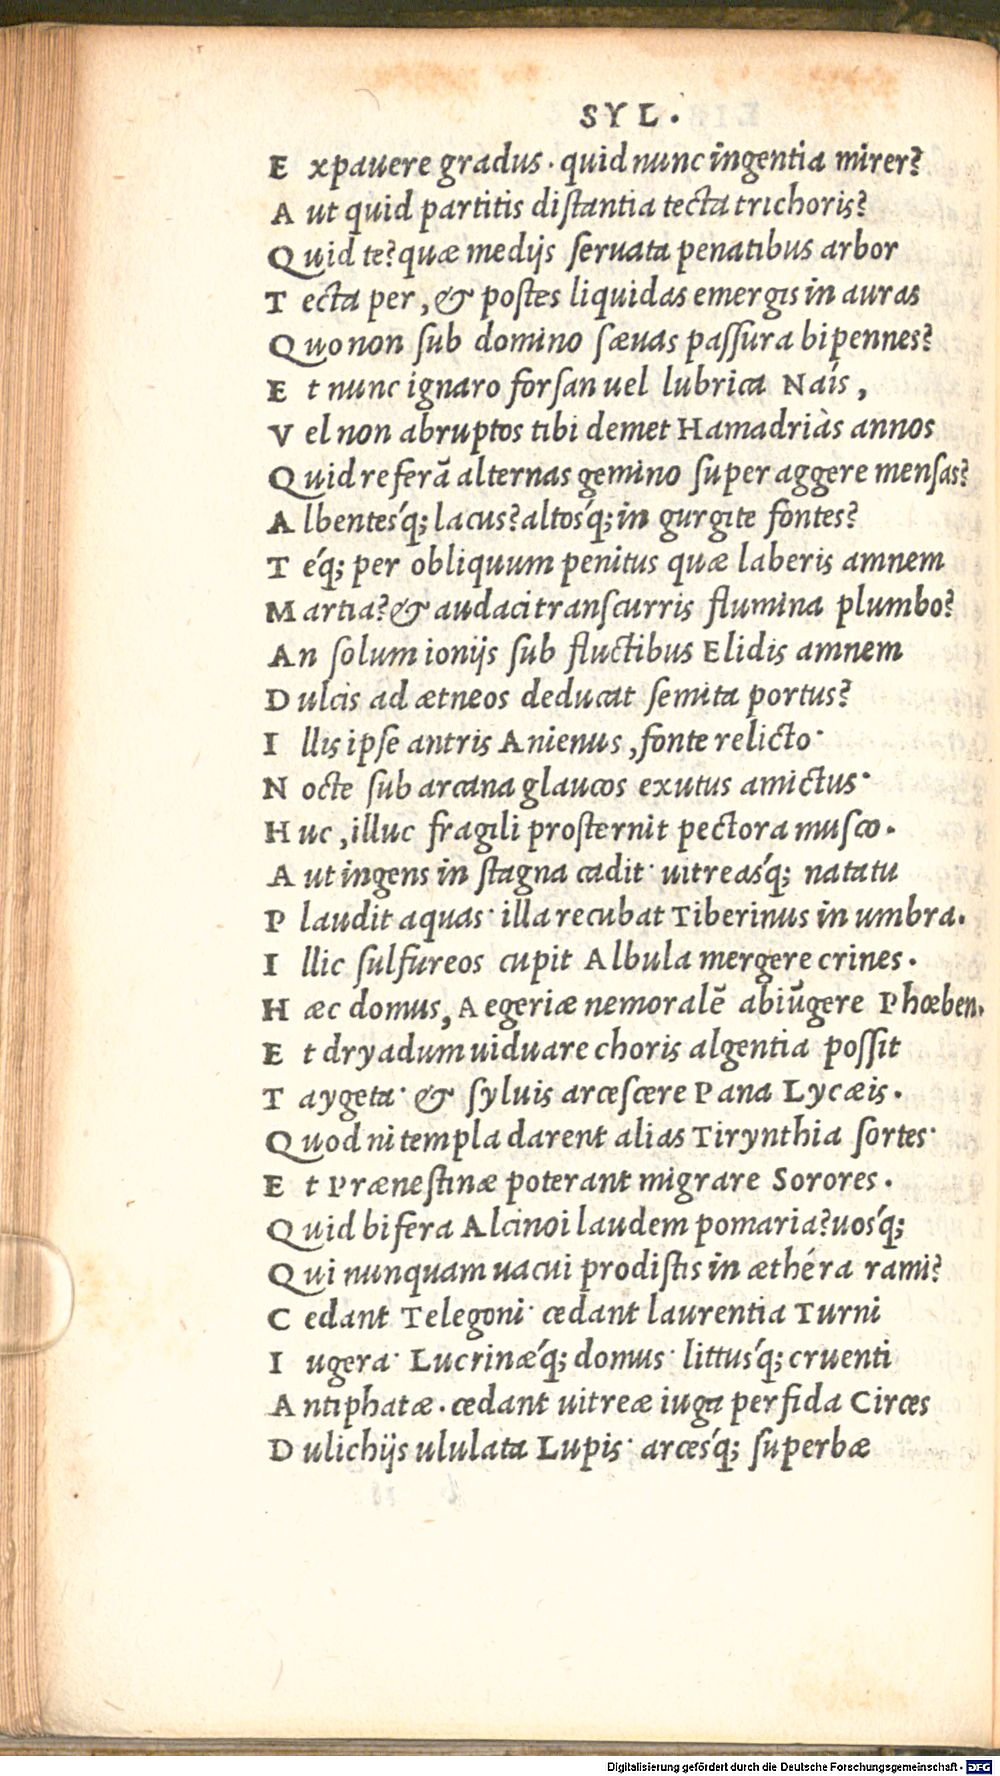 SYL.
E xpauere gradus. quid nunc ingentia mirer?
A ut quid partitis distantia tecta trichoris?
Q uid te? quæ medijs seruata penatibus arbor
T ecta per, & postes liquidas emergis in auras
Q uo non sub domino sæuas passura bipennes?
E t nunc ignaro forsan uel lubrica Naís,
V el non abruptos tibi demet Hamadriàs annos
Q uid referã alternas gemino super aggere mensas?
A lbentesq́; lacus? altosq́; in gurgite fontes?
T éq; per obliquum penitus quæ laberis amnem
M artia? & audaci transcurris flumina plumbo?
A n solum ionijs sub fluctibus Elidis amnem
D ulcis ad ætneos deducat semita portus?
I llis ipse antris Anienus, fonte relicto·
N octe sub arcana glaucos exutus amictus·
H uc, illuc fragili prosternit pectora musco.
A ut ingens in stagna cadit· uitreasq́; natatu
P laudit aquas· illa recubat Tiberinus in umbra.
I llic sulfureos cupit Albula mergere crines.
H æc domus, Aegeriæ nemoralẽ abiũgere Phœben,
E t dryadum uiduare choris algentia possit
T aygeta· & syluis arcescere Pana Lycæis.
Q uod ni templa darent alias Tirynthia sortes·
E t Prænestinæ poterant migrare Sorores.
Q uid bifera Alcinoi laudem pomaria? uosq́;
Q ui nunquam uacui prodistis in æthéra rami?
C edant Telegoni· cedant laurentia Turni
I ugera· Lucrinæq́; domus· littusq́; cruenti
A ntiphatæ. cedant uitreæ iuga perfida Circes
D ulichijs ululata Lupis· arcesq́; superbæ
Digitalisierung gefördert durch die Deutsche Forschungsgemeinschaft - DFG